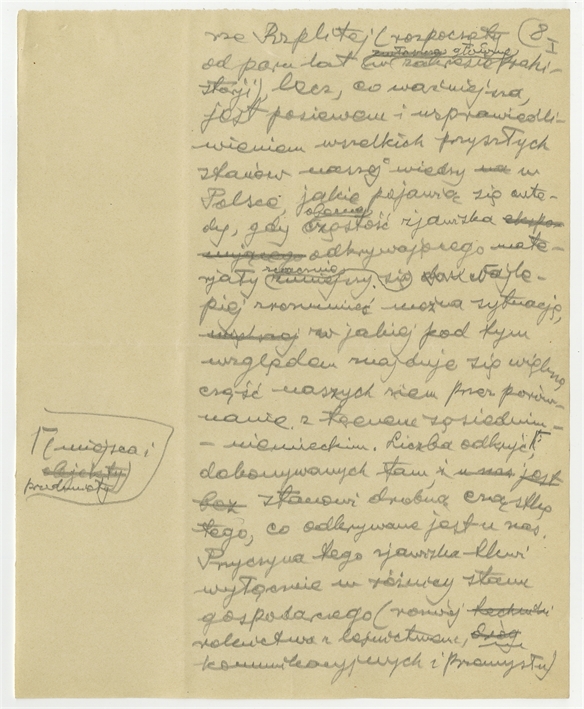 nie Rzplitej (rozpoczęty 8 I
od paru lat w zakresie prehi-
storji) lecz, co ważniejsza,
jest posiewem i usprawiedli-
wieniem wszelkich przyszłych
stanów naszej wiedzy na w
Polsce, jakie pojawią się wte-
dy, gdy obecna częstość zjawiska
odkrywającego mate-
rjały zmniejszy się Najle-
piej zrozumieć można sytuację,
w jakiej pod tym
względem znajduje się większa
część naszych ziem przez porów-
nanie z terenem sąsiednim-
- niemieckim. Liczba odkryć,
dokonywanych tam i u nas jest
bez stanowi drobną cząstkę
tego, co odkrywane jest u nas.
Przyczyna tego zjawiska tkwi
wyłącznie w różnicy stanu
gospodarczego (rozwój techniki
rolnictwa i leśnictwa, dróg
komunikacyjnych i przemysłu)
(miejsca i
objekty)
przedmioty